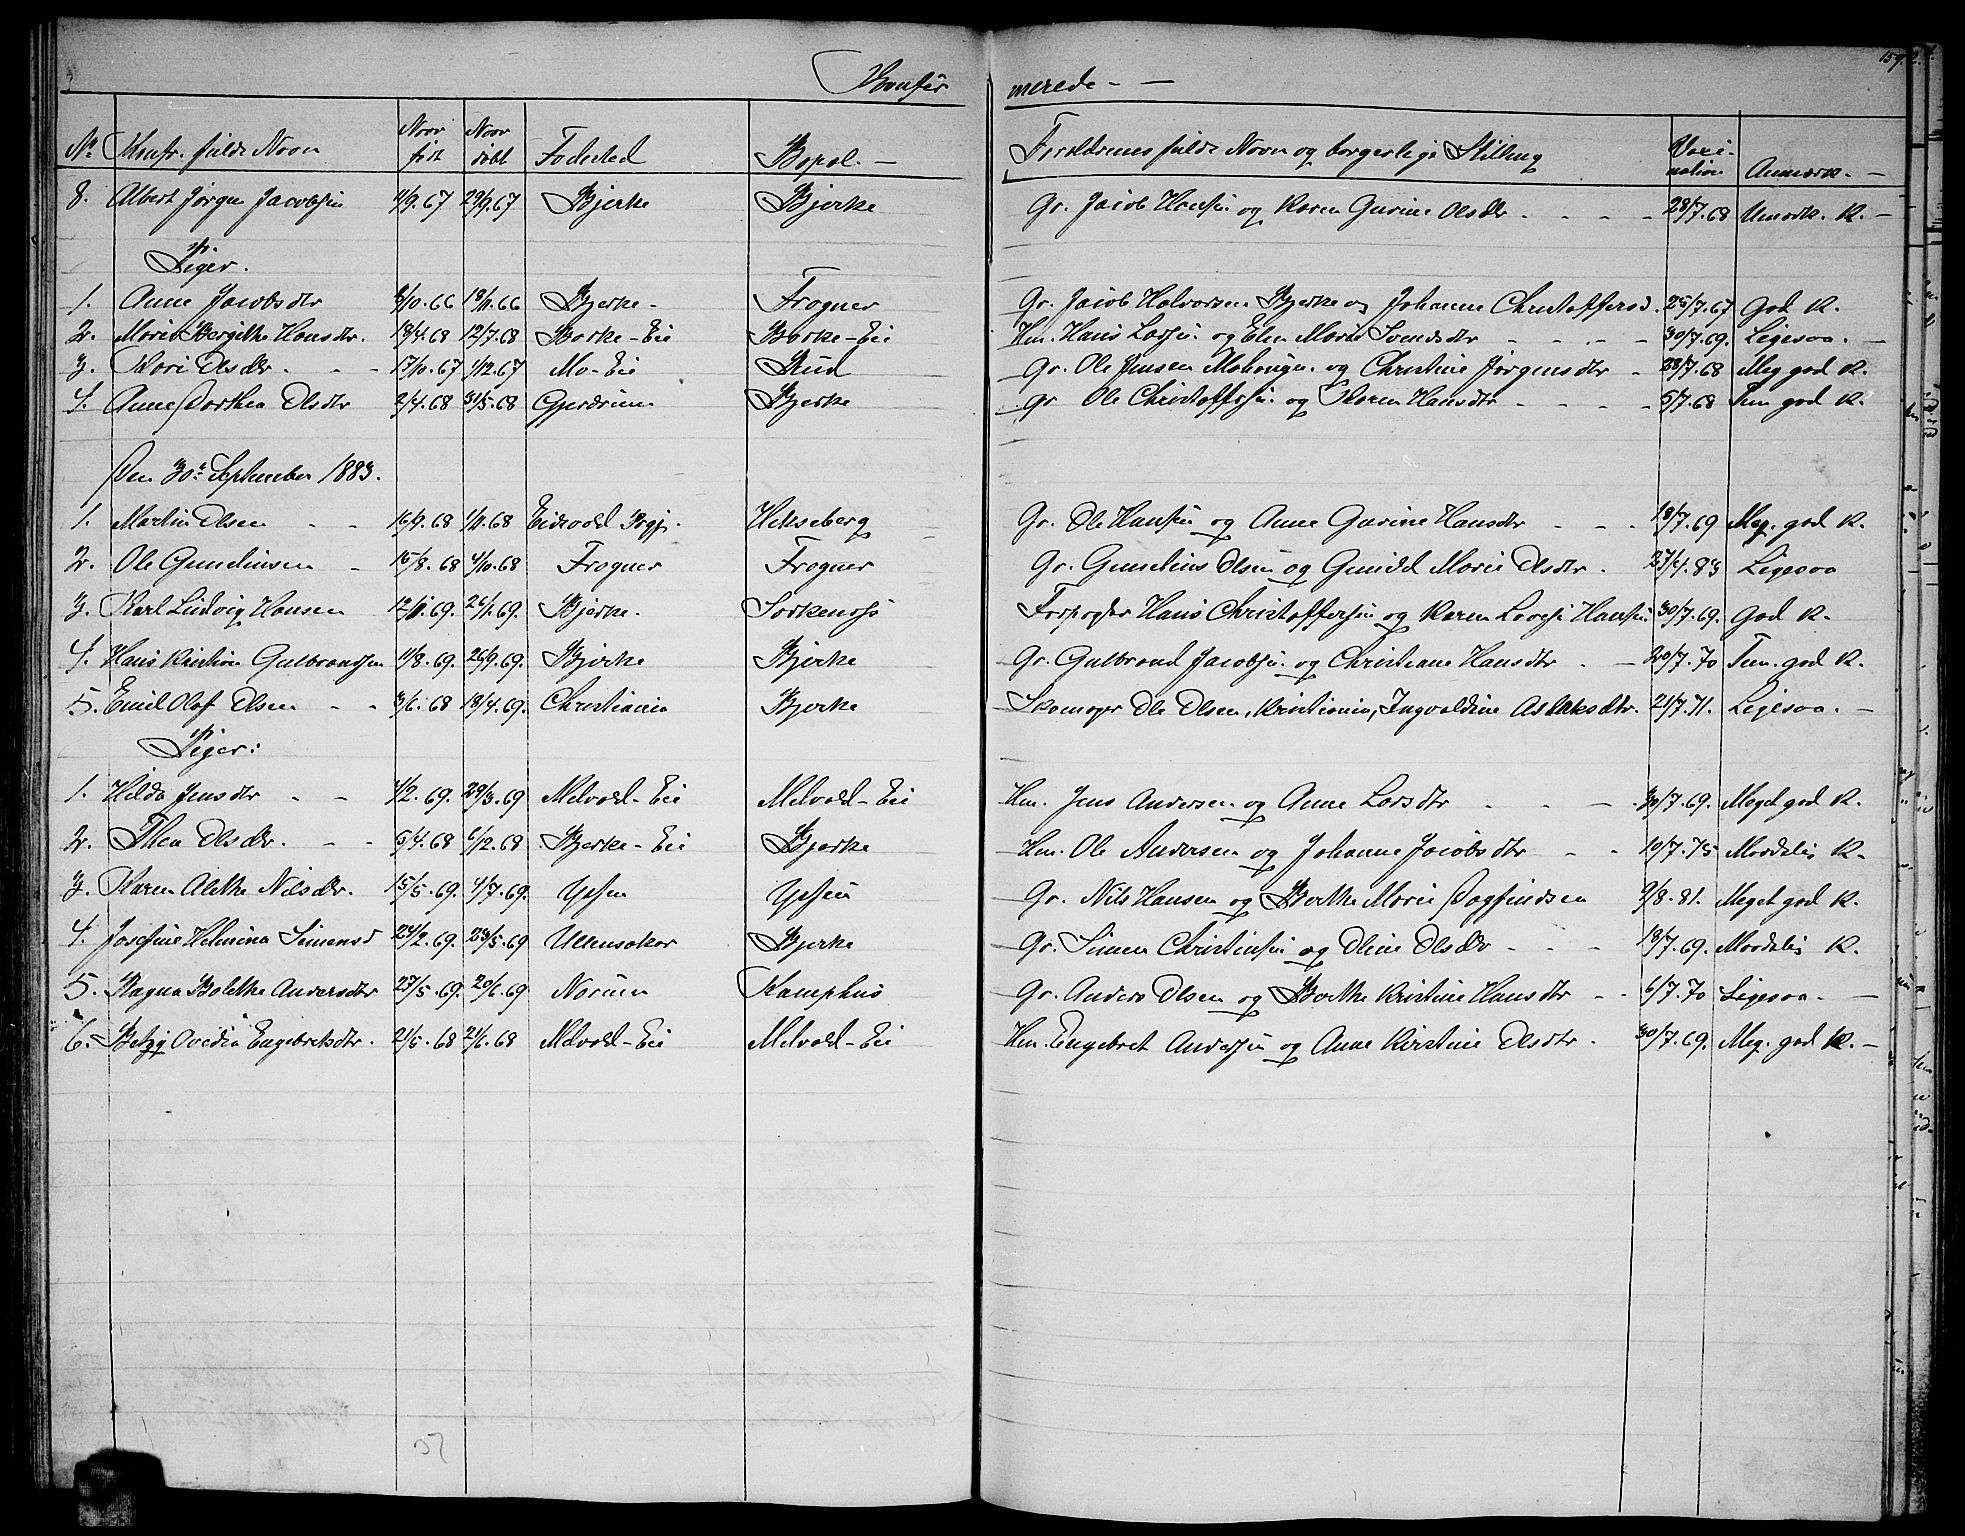 159.
Konfir merede - —
No Konfir. fulde Navn Naar født Naar døbt Fødested Bopæl. — Forældrenes fulde Navn og borgerlige Stilling Vaccination Anmærk. —
8. Albert Jörgen Jacobsen 11/9.67 29/9.67 Bjerke Bjerke Gr. Jacob Hansen og Karen Gurine Olsdtr - - - - 28/7.68 Umærk. K. —
Piger.
1. Anne Jacobsdtr 8/10.66 18/11.66 Bjerke - Frogner Gr. Jacob Halvorsen Bjerke og Johanne Christoffersd. 25/7.67 God K.
2. Marie Bergitte Hansdtr. 18/4.68 12/7.68 Borke-Eie Borke-Eie Hm. Hans Larsen og Elen Marie Svendsdtr - - - - 30/7.69. Ligesaa. —
3. Kari Olsdtr. - - 17/10.67 1/12.67 Mo-Eie Rud Gr. Ole Jensen Mohaugen. og Christine Jörgensdtr - 28/7.68 Meg god K.
4. Anne Dorthea Olsdtr 2/4.68 31/5.68 Gjerdrum Bjerke Gr Ole Christoffersen. og Karen Hansdtr - - - - 5/7.68 Tem god K.
Den 30te September 1883.
1. Martin Olsen - - 16/9.68 1/11.68 Eidsvold Prgj. Hekseberg Gr. Ole Hansen og Anne Gurine Hansdtr - - - 18/7.69 Meg. god K.
2. Ole Gunelinsen - 15/8.68 4/10.68 Frogner Frogner Gr. Gunelius Olsen og Gunild Marie Olsdtr. 27/4.83 Ligesaa
3. Karl Ludvig Hansen 12/11.69. 26/1.69. Bjerke. Hans Christoffersen og Karen Lovise Hansen. 30/7.69. God K.
4. Hans Kristian Gulbrandsen 11/8.69. 26/9.69. Bjerke Bjerke Gr. Gulbrand Jacobsen. og Christiane Hansdtr - - 20/7.70 Tem. god K.
5. Emil Olaf Olsen - - 3/6.68 18/4.69. Christiania Bjerke Skomager Ole Olsen, Kristiania, Ingvaldine Aslaksdtr. 21/7.71. Ligesaa. —
Piger:
1. Hilda Jensdtr - - 1/2.69. 29/3.69 Melvold-Eie Melvold-Eie Hm. Jens Andersen og Anne Larsdtr - - - 30/7.69. Meget god K.
2. Thea Olsdtr. - - 5/4.68 6/12.68 Bjerke-Eie Bjerke Hm. Ole Andersen og Johanne Jacobsdtr - - 10/7.75 Maadelig K.
3. Karen Alette Nilsdtr. 15/5.69. 4/7.69. Gr. Nils Hansen og Berthe Marie Dagfindsen 9/8.81. Meget god K.
4. Josefine Helmina Simensd 24/2.69. 23/5.69 Ullensaker Bjerke Gr. Simen Christiansen og Oline Olsdtr - - - 18/7.69. Maadelig K.
5. Ragna Bolette Andersdtr 27/5.69. 20/6.69 Norum Kamphus Gr. Anders Olsen og Berthe Kristine Hansdtr - - 6/7.70 Ligesaa. —
6. Betzy Ovedia Engebretsdtr. 21/5.68 21/6.68 Melvold-Eie Melvold-Eie Hm. Engebret Andersen og Anne Kirstine Olsdtr. 30/7.69. Meg. god K. —
37